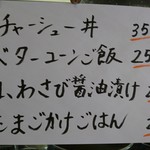 チャーシュー丼 35
バターコーンご飯 25
わさび醤油漬け
たまごかけごはん